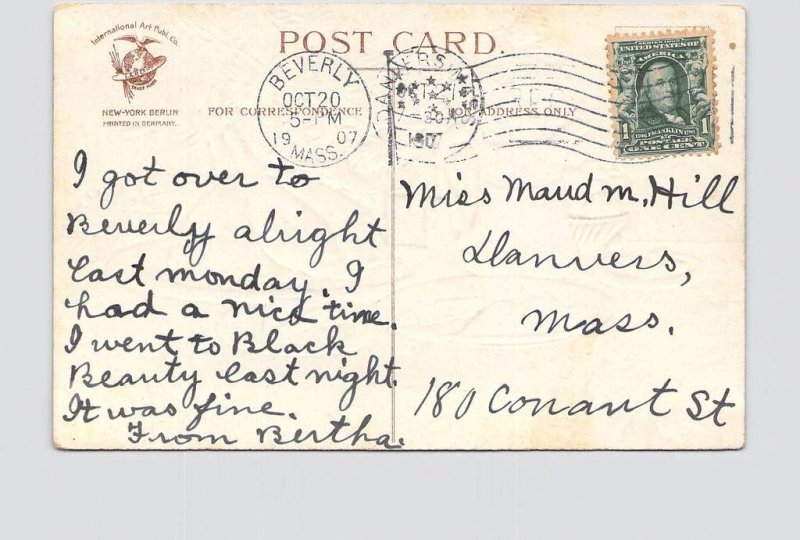 International Art Publ. Co.
TRADE MARK
NEW-YORK BERLIN
PRINTED IN GERMANY.
POST CARD.
FOR CORRESPONDENCE
FOR ADDRESS ONLY
BEVERLY
OCT 20
5-PM
1907
MASS.
DANVERS
MASS
1907
UNITED STATES OF
AMERICA
1
1
POSTAGE
ONE CENT
I got over to
Beverly alright
last monday. I
had a nice time.
I went to Black
Beauty last night.
It was fine.
From Bertha.
Miss Maud M. Hill
Danvers,
Mass.
180 Conant St